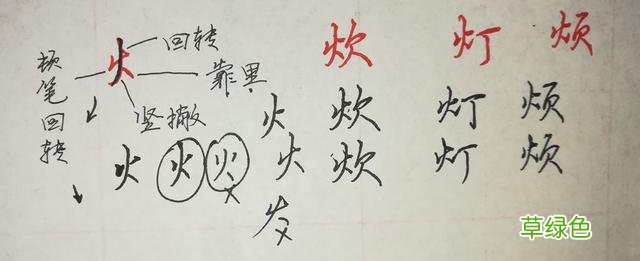 火 回转 炊 灯 烦
顿笔回转 靠里
竖撇
火 炊 灯 烦
火 火 火 火 炊 灯 烦
草绿色